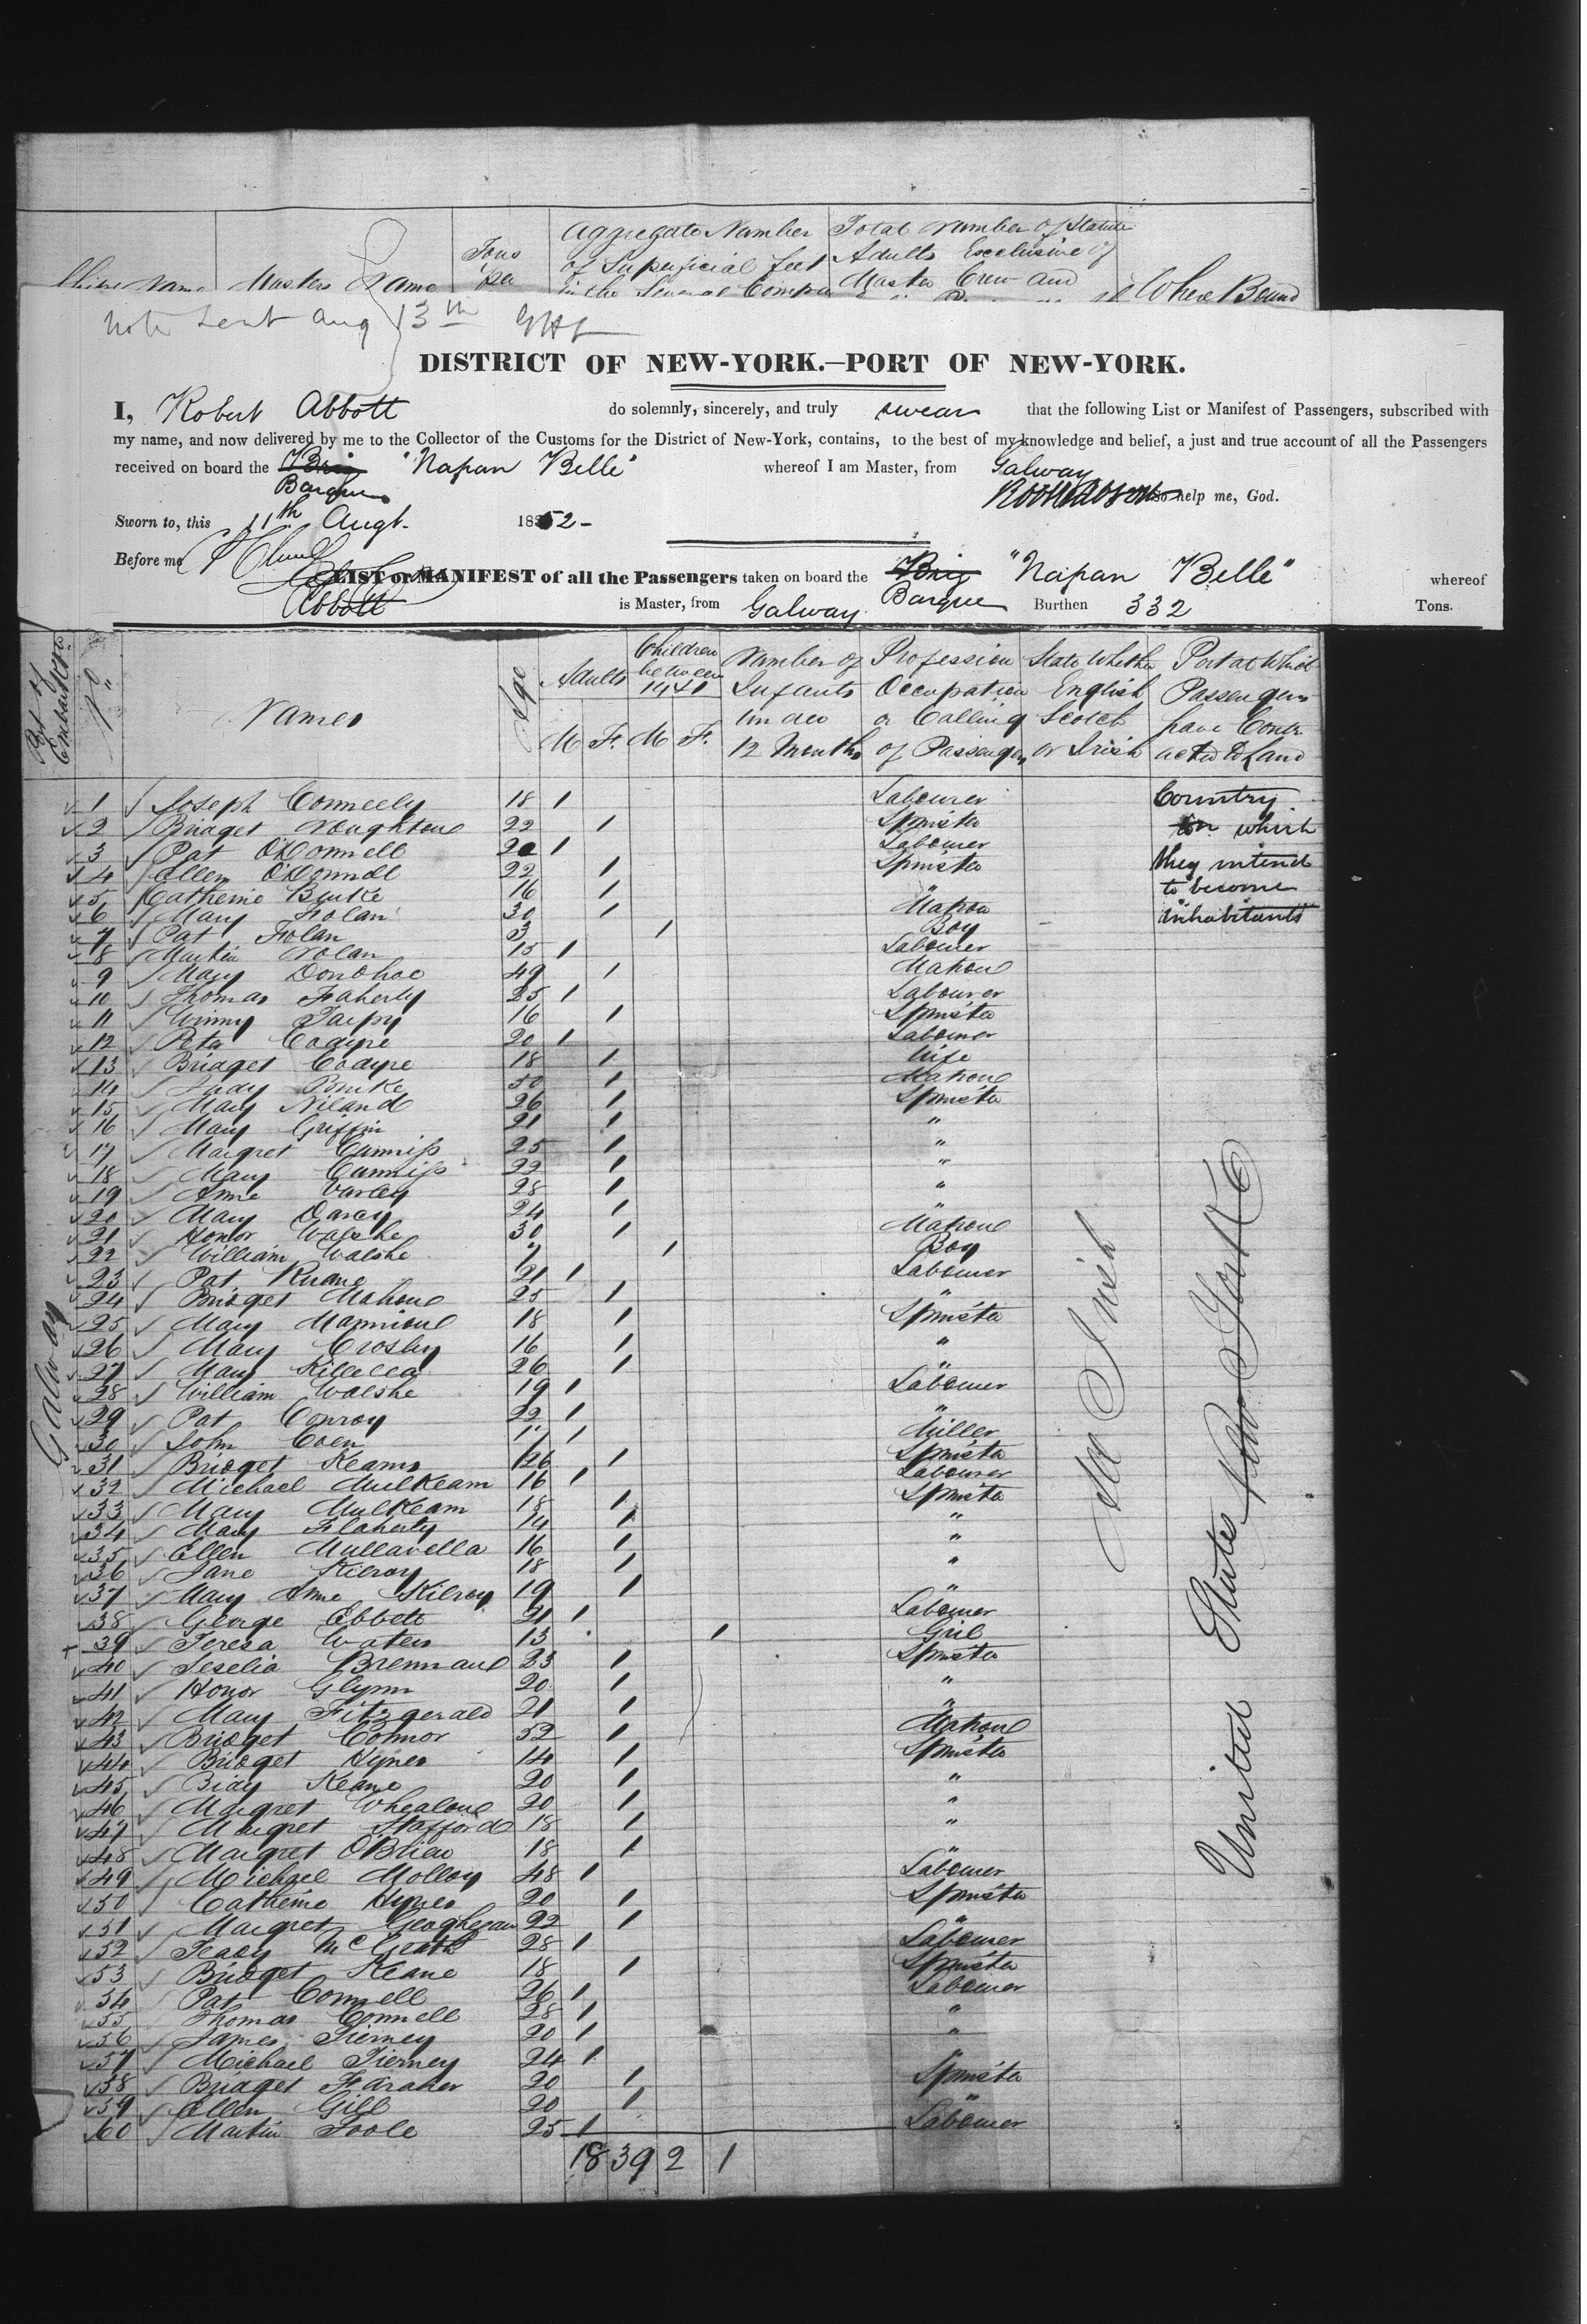 Aggregate Number Total Number of Statute
Tons of Superficial feet Adults Exclusive of
Ships Name Masters Name per in the Several Compa Master Crew and Where Bound
Note Sent Aug 13th
DISTRICT OF NEW-YORK.—PORT OF NEW-YORK.
I, Robert Abbott do solemnly, sincerely, and truly swear that the following List or Manifest of Passengers, subscribed with
my name, and now delivered by me to the Collector of the Customs for the District of New-York, contains, to the best of my knowledge and belief, a just and true account of all the Passengers
received on board the Brig "Napan Belle" whereof I am Master, from Galway
Barque Robt Abbott so help me, God.
Sworn to, this 11th Augt. 1852-
Before me
LIST or MANIFEST of all the Passengers taken on board the Brig "Napan Belle" whereof
Abbott is Master, from Galway Barque Burthen 332 Tons.
Port of Embarkation No Names Age Adults M F. Children between 14 & 1 M F. Number of Infants under 12 Months Profession Occupation or Calling of Passengers State Whether English Scotch or Irish Port at Which Passengers have Contracted to Land
1 Joseph Conneely 18 1 Labourer Country
2 Bridget Noughtone 22 1 Spinster in which
3 Pat O'Donnell 20 1 Labourer they intend
4 Ellen O'Donnell 22 1 Spinster to become
5 Catherine Burke 16 1 " inhabitants
6 Mary Folan 30 1 Matron
7 Pat Folan 3 1 Boy
8 Martin Nolan 15 1 Labourer
9 Mary Donohoe 49 1 Matrone
10 Thomas Faherty 25 1 Labourer
11 Winny Tarpy 16 1 Spinster
12 Peter Codyre 20 1 Labourer
13 Bridget Codyre 18 1 Wife
14 Judy Burke 50 1 Matrone
15 Mary Niland 26 1 Spinster
16 Mary Griffin 21 1 "
17 Margret Cunniss 25 1 "
18 Mary Cunniss 22 1 "
19 Anne Varley 28 1 "
20 Mary Darcy 24 1 "
21 Honor Walshe 30 1 Matrone
22 William Walshe 7 1 Boy
23 Pat Ruane 21 1 Labourer
24 Bridget Mahone 25 1 "
25 Mary Mannione 18 1 Spinster
26 Mary Crosby 16 1 "
27 Mary Killelea 26 1 "
28 William Walshe 19 1 Labourer
29 Pat Conroy 22 1 "
30 John Coen " 1 Miller
31 Bridget Keams 26 1 Spinster
32 Michael Mulkeam 16 1 Labourer
33 Mary Mulkeam 18 1 Spinster
34 Mary Flaherty 14 1 "
35 Ellen Mullavella 16 1 "
36 Jane Kilroy 18 1 "
37 Mary Anne Kilroy 19 1 "
38 George Ebbett 21 1 Labourer
39 Teresa Waters 13 1 Girl
40 Seselia Brennane 23 1 Spinster
41 Honor Glynn 20 1 "
42 Mary Fitzgerald 21 1 "
43 Bridget Connor 52 1 Matrone
44 Bridget Hynes 14 1 Spinster
45 Bidy Keane 20 1 "
46 Margret Whealone 20 1 "
47 Margret Stafford 18 1 "
48 Margret O'Brien 18 1 "
49 Michael Molloy 48 1 Labourer
50 Catherine Hynes 20 1 Spinster
51 Margret Geoghegan 22 1 "
52 Teady McGrath 28 1 Labourer
53 Bridget Keane 18 1 Spinster
54 Pat Connell 26 1 Labourer
55 Thomas Connell 28 1 "
56 James Tierney 20 1 "
57 Michael Tierney 24 1
58 Bridget Faraher 20 1 Spinster
59 Ellen Gill 20 1 "
60 Martin Toole 25 1 Labourer
18 39 2 1
Galway
All Irish
United States New York